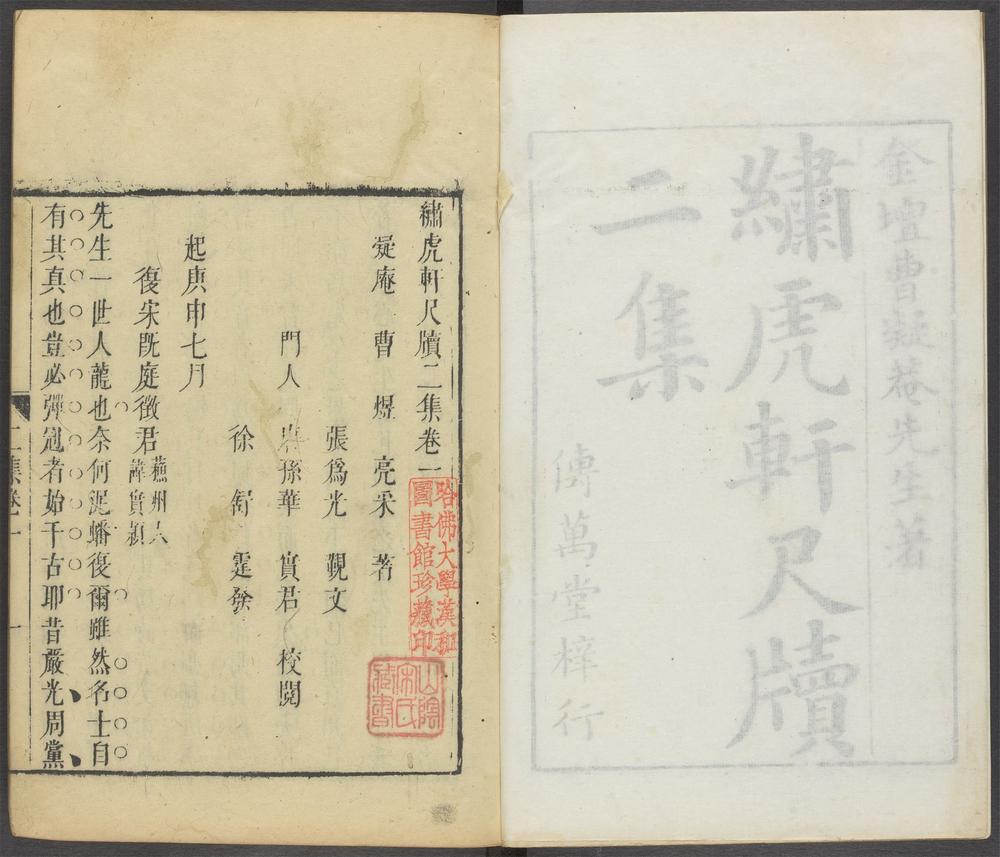 金壇曹凝菴先生著
繡虎軒尺牘
二集
傳萬堂梓行
繡虎軒尺牘二集卷一
哈佛大學漢和
圖書館珍藏印
山陰
宋氏
藏書
凝庵 曹煜 亮采 著
張爲光 覲文
門人 唐孫華 實君 校閱
徐 霆發
起庚申七月
復宋旣庭徵君
蘇州人
諱實穎
先生一世人龍也奈何泥蟠復爾雖然名士自
有其真也豈必彈冠者始千古耶昔嚴光周黨
二集卷一
一